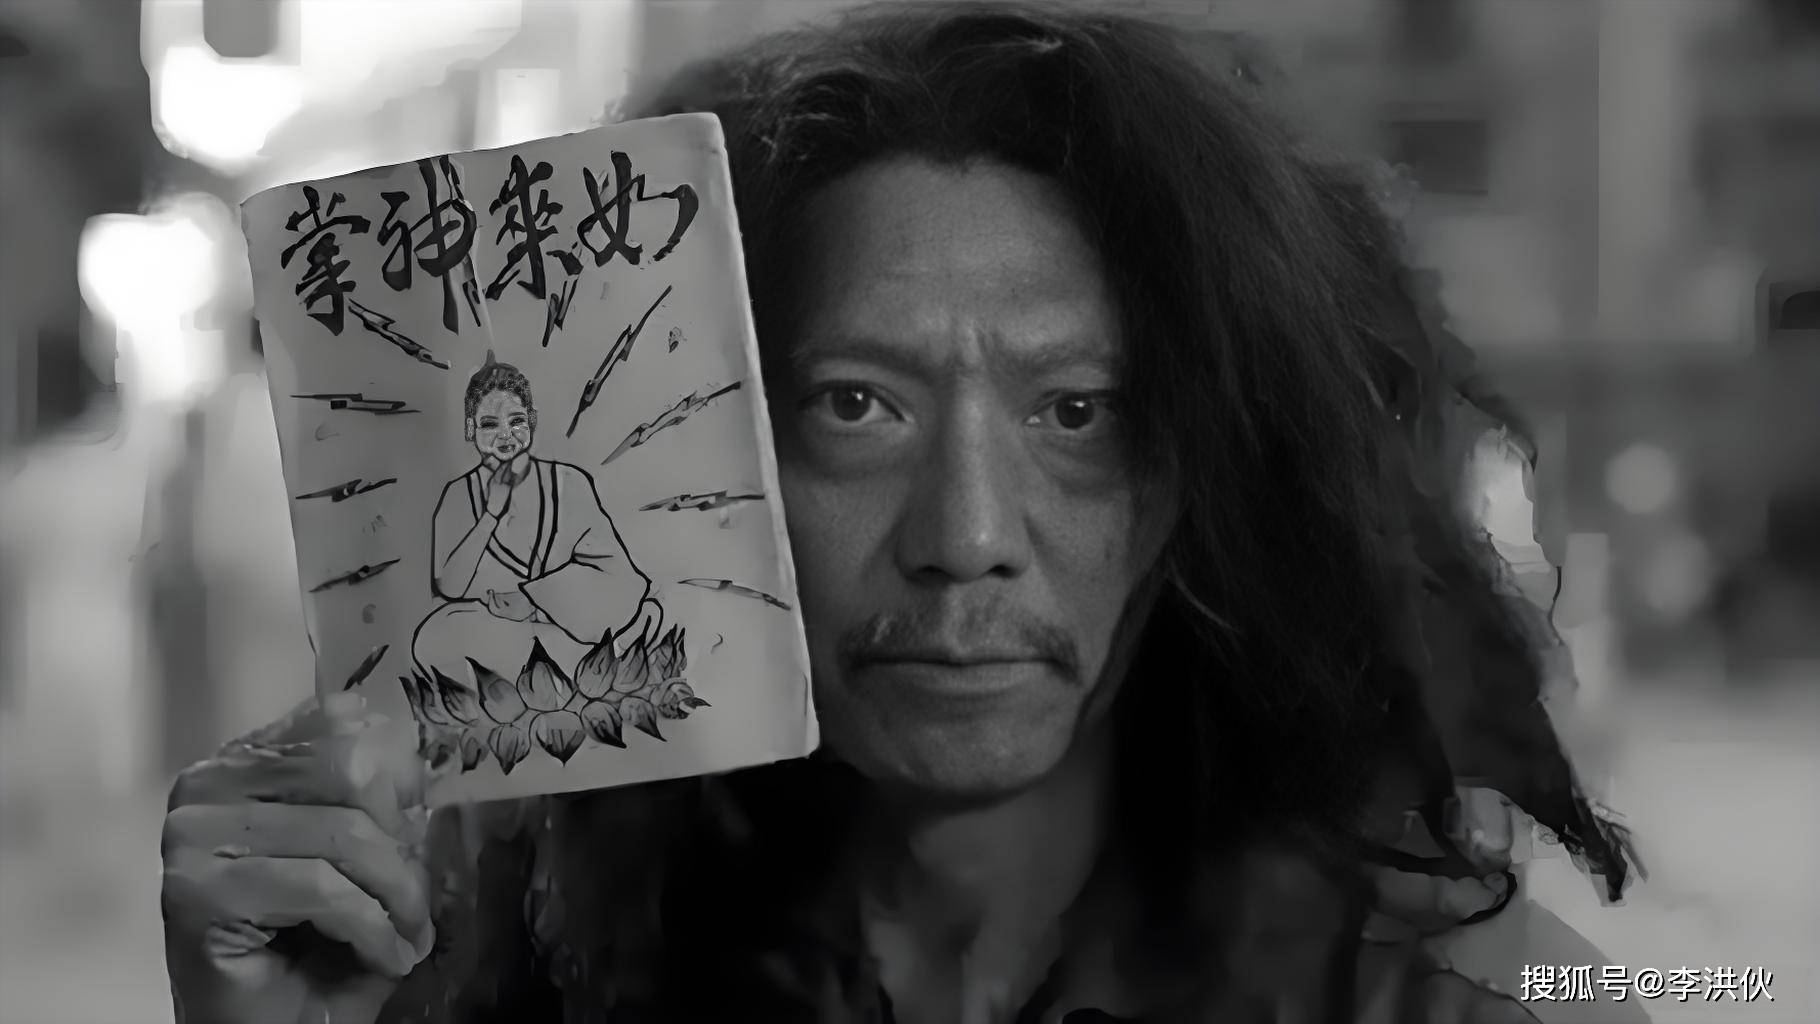 如來神掌
搜狐号@李洪伙